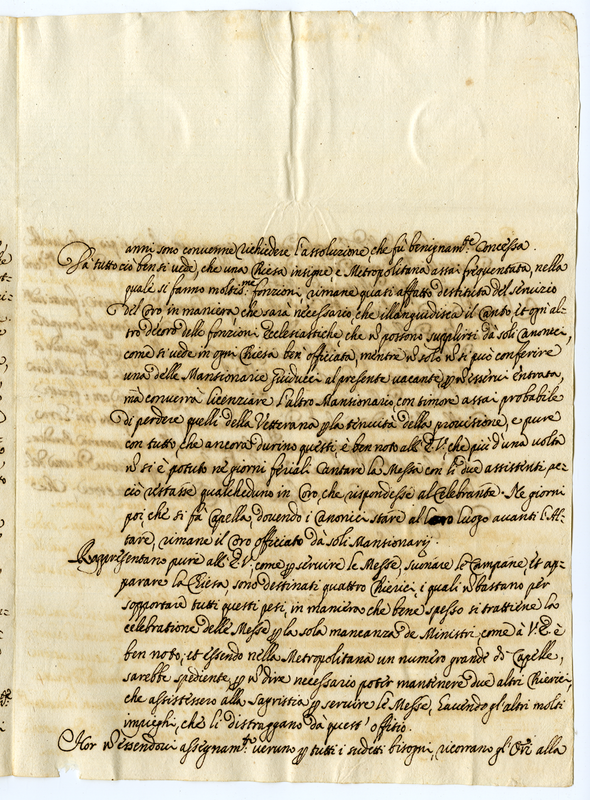 anni sono convenne richiedere l'assoluzione, che fù benignam.te Concessa.
Dà tutto ciò ben si vede, che una Chiesa insigne e Metropolitana assai frequentata, nella
quale si fanno moltis.me fonzioni, rimane quasi affatto destituta del servizio
del Coro in maniera che sarà necessario, che illanguidisca il Canto, et ogn'al-
tro decoro delle fonzioni Ecclesiastiche che ñ possono supplirsi dà soli Canonici,
come si vede in ogni Chiesa ben'officiata, mentre ñ solo ñ si può conferire
una delle Mansionarie Guiducci al presente vacante, p ñ esservi entrata,
mà converrà licenziare l'altro Mansionario con timore assai probabile
di perdere quelli della Vetterana p la tenuità della provisione, e pure
con tutto, che ancora durino questi, è ben noto all'E.V. che più d'una volta
ñ si è potuto ne giorni feriali Cantare la Messa con li due assistenti, per
ciò restasse qualcheduno in Coro, che rispondesse al Celebrante. Ne giorni
poi, che si fà Capella, dovendo i Canonici stare al loro luogo avanti l'Al-
tare, rimane il Coro officiato dà soli Mansionarij.
Rappresentano pure all'E.V., come p servire le Messe, suonare le Campane, et ap-
parare la Chiesa, sono destinati quattro Chierici, i quali ñ bastano per
sopportare tutti questi pesi, in maniera che bene spesso si trattiene la
celebratione delle Messe p la sola mancanza de Ministri, come à V.E. è
ben noto; et essendo nella Metropolitana un numero grande di Capelle,
sarebbe spediente, p ñ dire necessario poter mantenere due altri Chierici,
che assistessero alla Sagristia p servire le Messe, havendo gl'altri molti
impieghi, che li distraggano dà quest'offitio.
Hor ñ essendovi assegnam.to veruno p tutti i sudetti bisogni, ricorrano gl'Ori alla